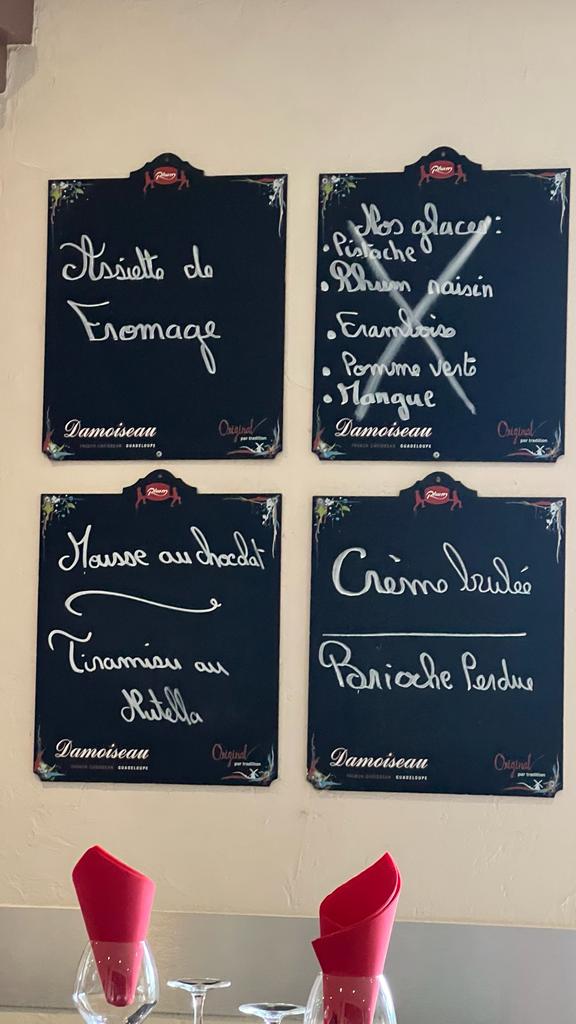 Rhum
Assiette de
Fromage
Damoiseau
FRENCH CARIBBEAN GUADELOUPE
Original
par tradition
Rhum
Nos glaces :
• Pistache
• Rhum raisin
• Framboise
• Pomme verte
• Mangue
Damoiseau
FRENCH CARIBBEAN GUADELOUPE
Original
par tradition
Rhum
Mousse au chocolat
Tiramisu au
Nutella
Damoiseau
FRENCH CARIBBEAN GUADELOUPE
Original
par tradition
Rhum
Crème brulée
Brioche Perdue
Damoiseau
FRENCH CARIBBEAN GUADELOUPE
Original
par tradition